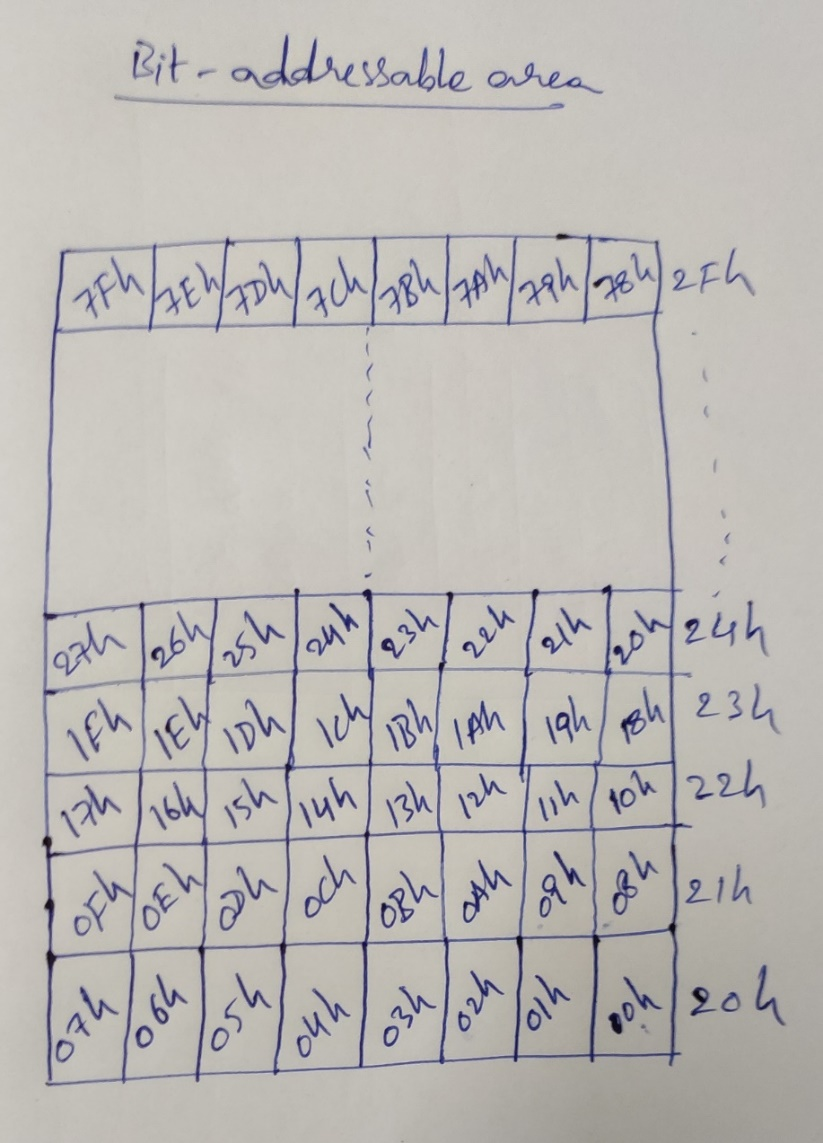 Bit-addressable area
7Fh 7Eh 7Dh 7Ch 7Bh 7Ah 79h 78h 2Fh
27h 26h 25h 24h 23h 22h 21h 20h 24h
1Fh 1Eh 1Dh 1Ch 1Bh 1Ah 19h 18h 23h
17h 16h 15h 14h 13h 12h 11h 10h 22h
0Fh 0Eh 0Dh 0Ch 0Bh 0Ah 09h 08h 21h
07h 06h 05h 04h 03h 02h 01h 00h 20h